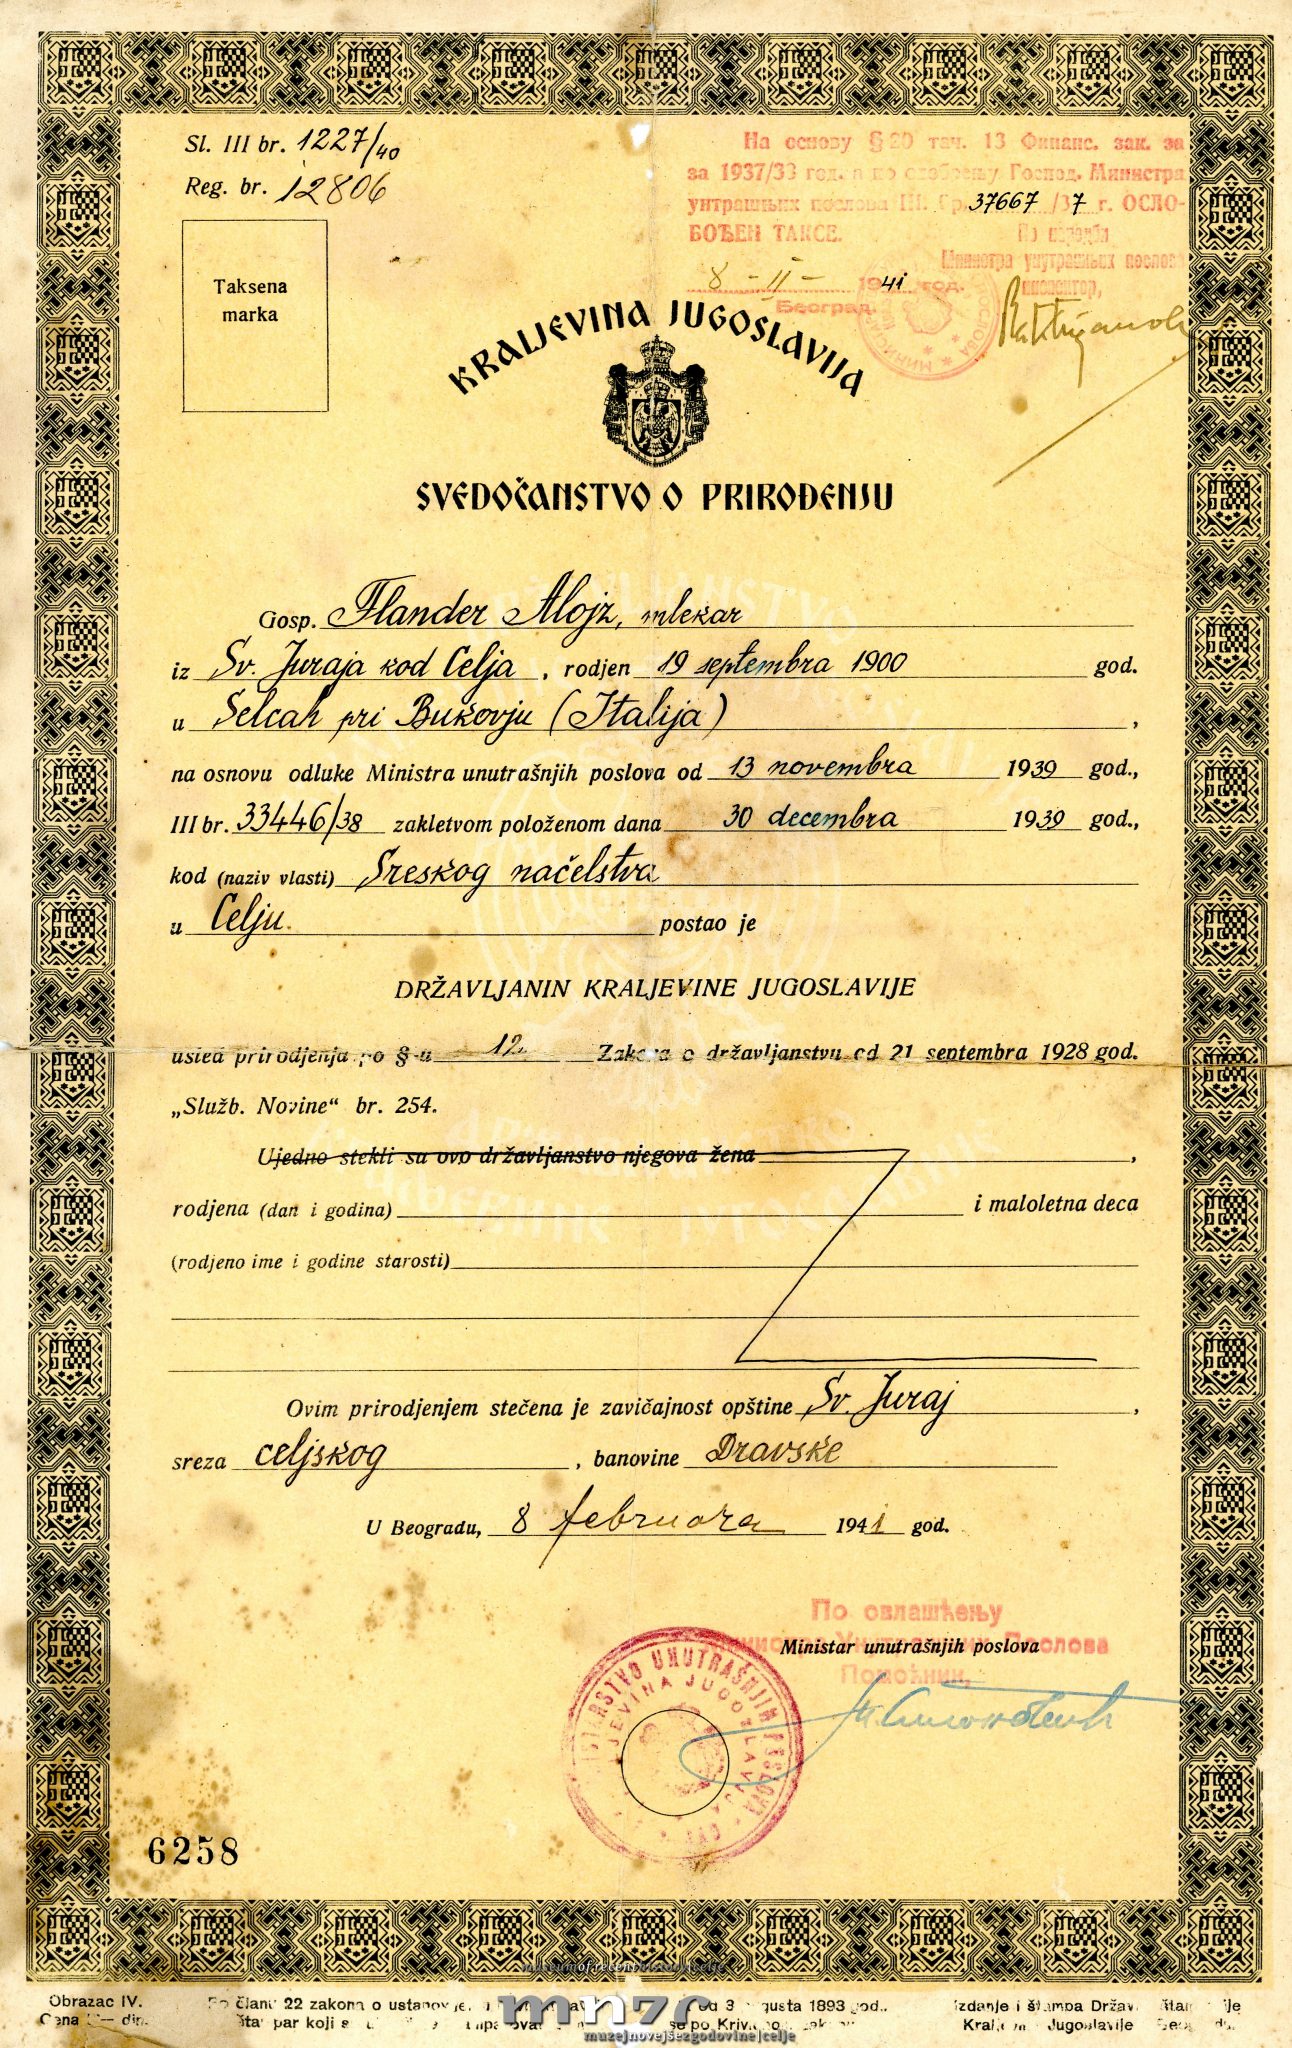 Sl. III br. 1227/40
Reg. br. 12806
Taksena
marka
На основу § 20 тач. 13 Финанс. зак. за
за 1937/38 год. а по одобрењу Господ. Министра
унтрашњих послова III. Бр. 37667/37 г. ОСЛО-
БОЂЕН ТАКСЕ.
По наредби
Министра унутрашњих послова
8 - II - 1941 год.
инспектор,
Београд.
KRALJEVINA JUGOSLAVIJA
SVEDOČANSTVO O PRIROĐENJU
Gosp. Flander Alojz, mlekar
iz Sv. Juraja kod Celja, rodjen 19 septembra 1900 god.
u Selcah pri Bukovju (Italija),
na osnovu odluke Ministra unutrašnjih poslova od 13 novembra 1939 god.,
III br. 33446/38 zakletvom položenom dana 30 decembra 1939 god.,
kod (naziv vlasti) Sreskog načelstva
u Celju. postao je
DRŽAVLJANIN KRALJEVINE JUGOSLAVIJE
usled prirodjenja po §-u 12. Zakona o državljanstvu od 21 septembra 1928 god.
„Služb. Novine“ br. 254.
Ujedno stekli su ovo državljanstvo njegova žena ,
rodjena (dan i godina) i maloletna deca
(rodjeno ime i godine starosti)
Ovim prirodjenjem stečena je zavičajnost opštine Sv. Juraj,
sreza celjskog, banovine Dravske
U Beogradu, 8 februara 1941 god.
По овлашћењу
Ministar unutrašnjih poslova
Помоћник,
UNUTRAŠNJIH POSLOVA
JUGOSLAVIJA
6258
museumofrecenthistory|celje
Obrazac IV.
Cena din.
Po članu 22 zakona o od 3 avgusta 1893 god.,
par koji se po
Izdanje i štampa Državne štamparije
Kraljevine Jugoslavije Beograd.
mnzc
muzejnovejšezgodovine|celje